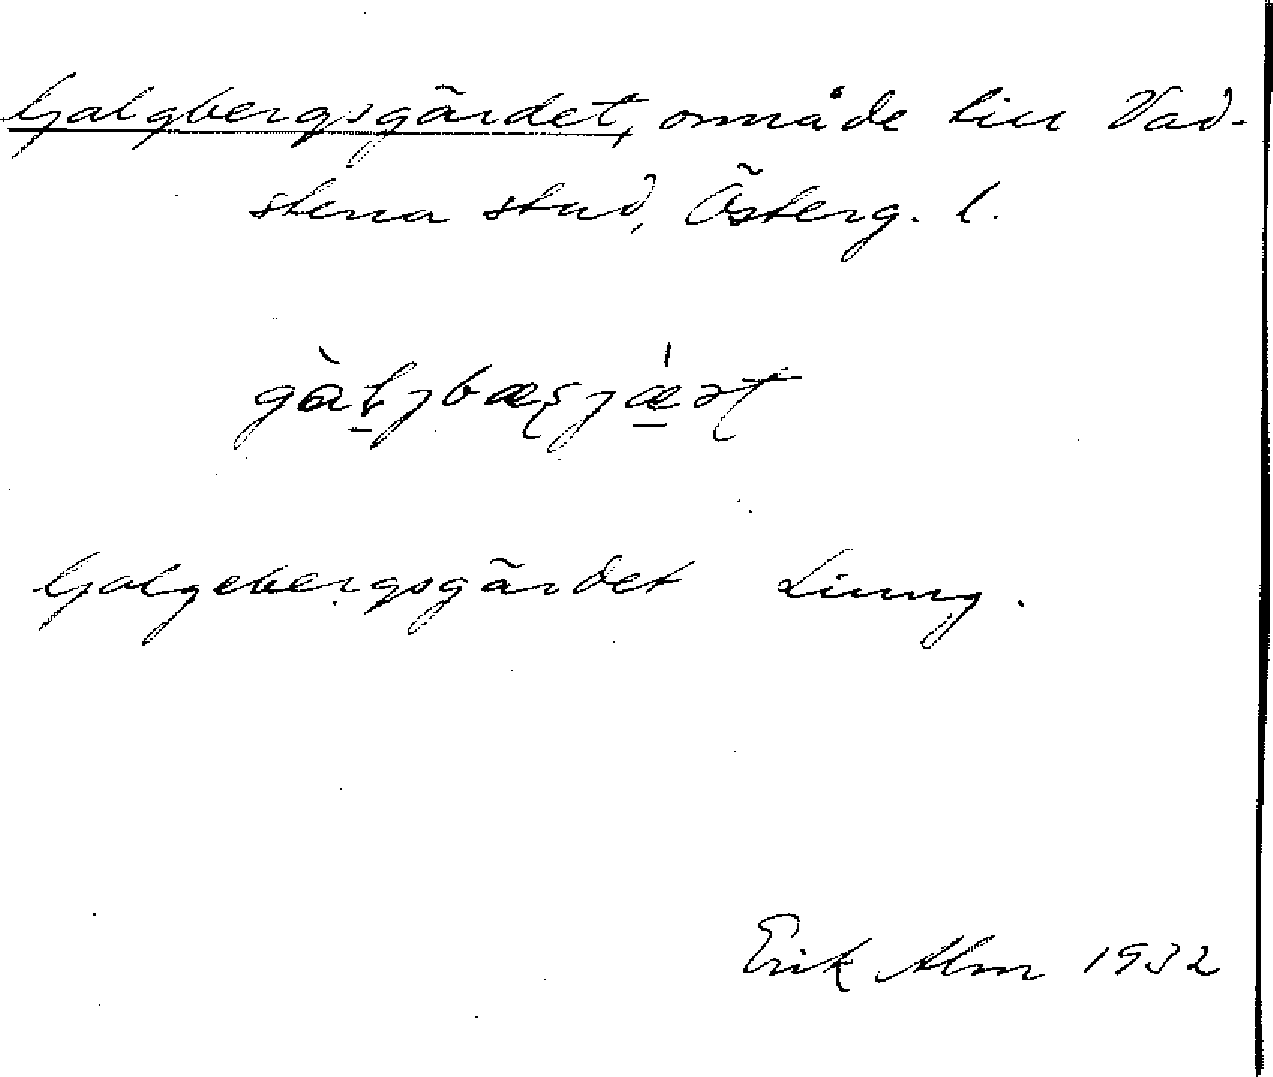 Galgbergsgärdet, område till Vad-
stena stad, Österg. l.
Galgebergsgärdet Ljung.
Erik Alm 1932